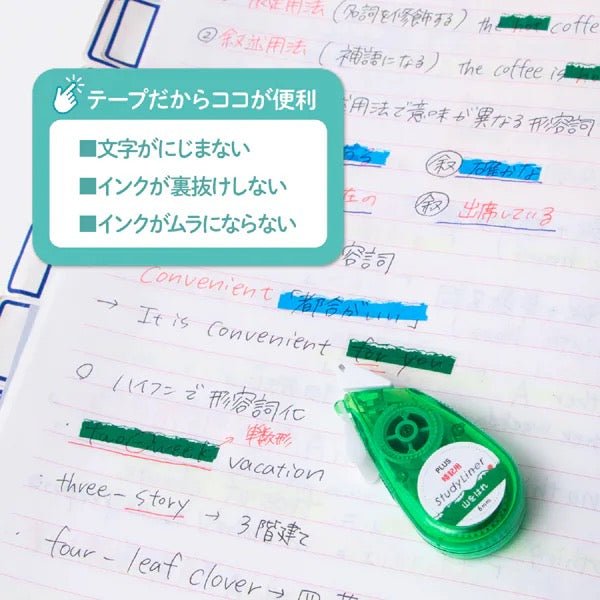 限定用法(名詞を修飾する) the hot coffe
② 叙述用法(補語になる) the coffee is hot
用法で意味が異なる形容詞
テープだからココが便利
■文字がにじまない
■インクが裏抜けしない
■インクがムラにならない
叙 確かな
在の 叙 出席している
容詞
Convenient 「都合がいい」
→ It is convenient for you
○ ハイフンで形容詞化
単数形
・ two-week vacation
・ three-story → 3階建て
・ four-leaf clover →
PLUS
暗記用
StudyLiner
山をはれ
6mm